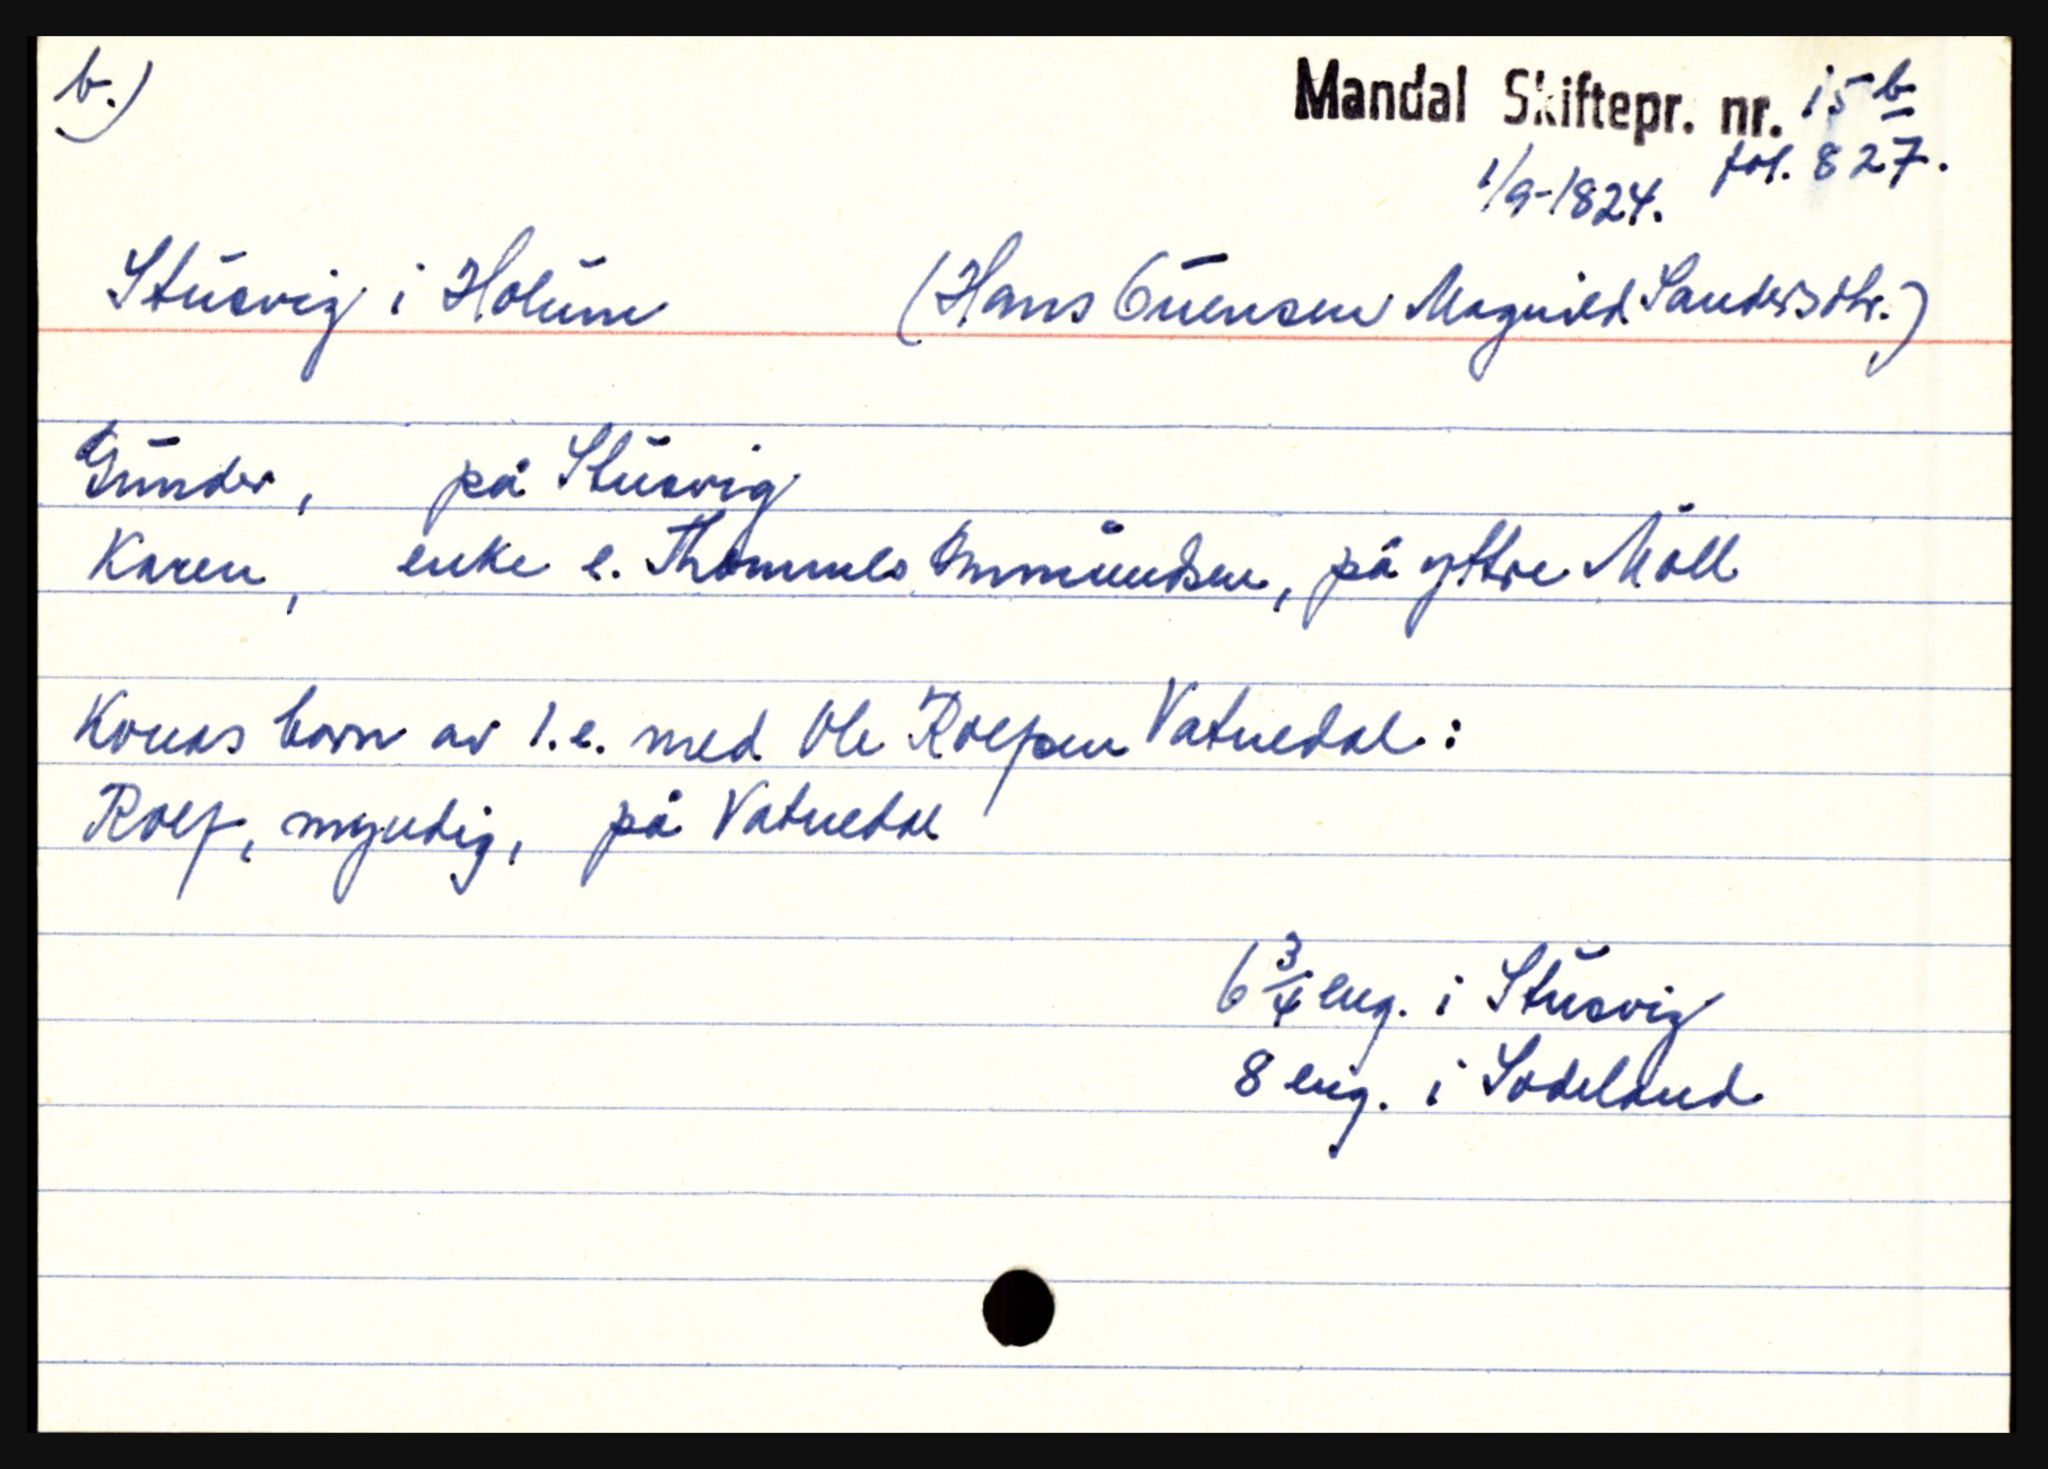 b.)
Mandal Skiftepr. nr. 15 b
1/9-1824. fol. 827.
Stusvig i Holum (Hans Guensen Magnild Sandersdtr.)
Gunder, på Stusvig
Karen, enke e. Thommes Ommundsen, på yttre Møll
Konas born av 1.e. med Ole Roefsen Vatnedal:
Roef, myndig, på Vatnedal
6 3/4 eng. i Stusvig
8 eng. i Sodeland